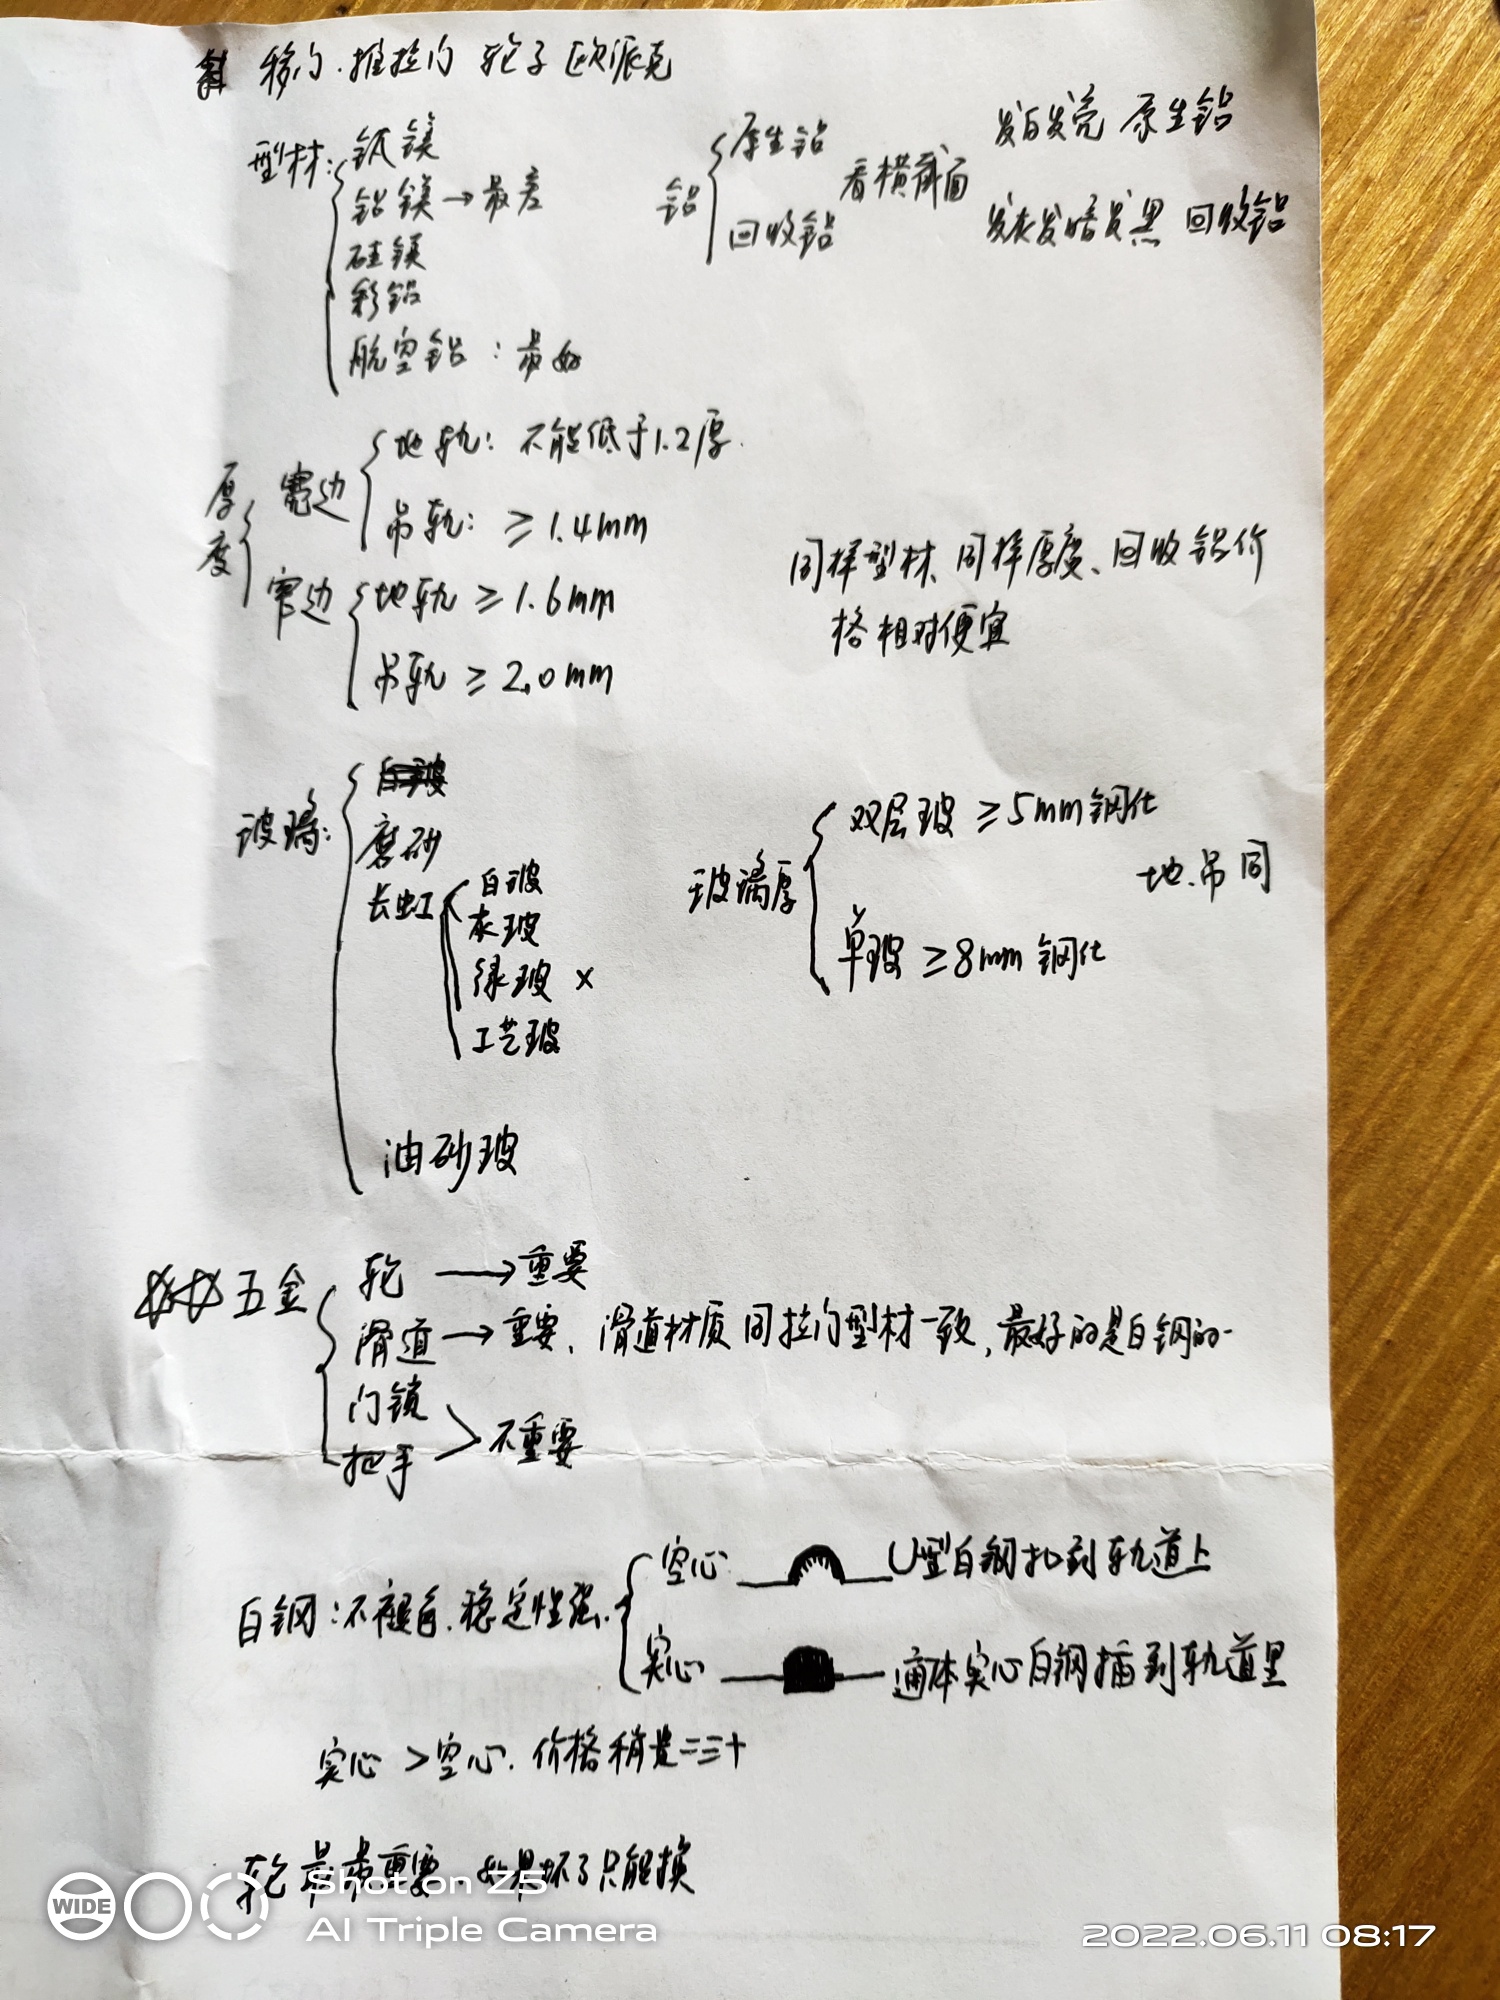 移门.推拉门 轮子 欧派克
型材: 钛镁
铝镁→最差
硅镁
彩铝
航空铝:最好
铝 原生铝
回收铝
看横截面
发白发亮 原生铝
发灰发暗发黑 回收铝
厚度
宽边 地轨: 不能低于1.2厚.
吊轨: ≥1.4mm
窄边 地轨 ≥1.6mm
吊轨 ≥2.0mm
同样型材、同样厚度、回收铝价
格相对便宜
玻璃:
白玻
磨砂
长虹 白玻
灰玻
绿玻 ×
工艺玻
油砂玻
玻璃厚 双层玻 ≥5mm钢化
地.吊同
单玻 ≥8mm 钢化
五金 轮 →重要
滑道→重要、滑道材质同拉门型材一致,最好的是白钢的
门锁
把手 不重要
白钢:不褪色.稳定性强.
空心: U型白钢扣到轨道上
实心 通体实心白钢插到轨道里
实心 >空心. 价格稍贵二三十
轮最最重要.如果坏了只能换
WIDE
Shot on Z5
AI Triple Camera
2022.06.11 08:17